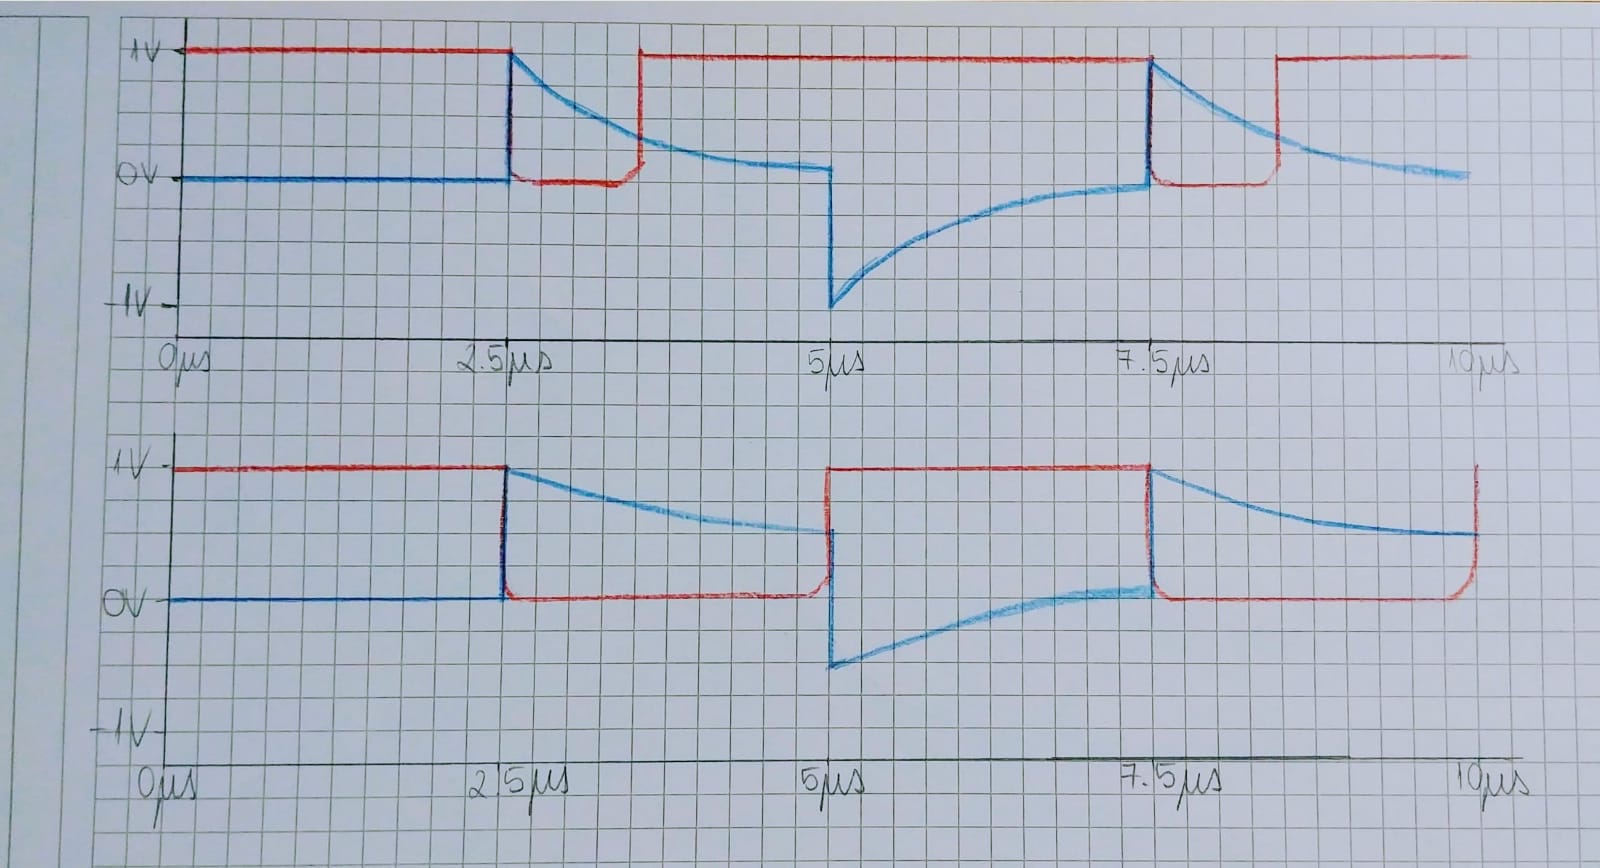 1V
0V
-1V
0µs 2.5µs 5µs 7.5µs 10µs
1V
0V
-1V
0µs 2.5µs 5µs 7.5µs 10µs